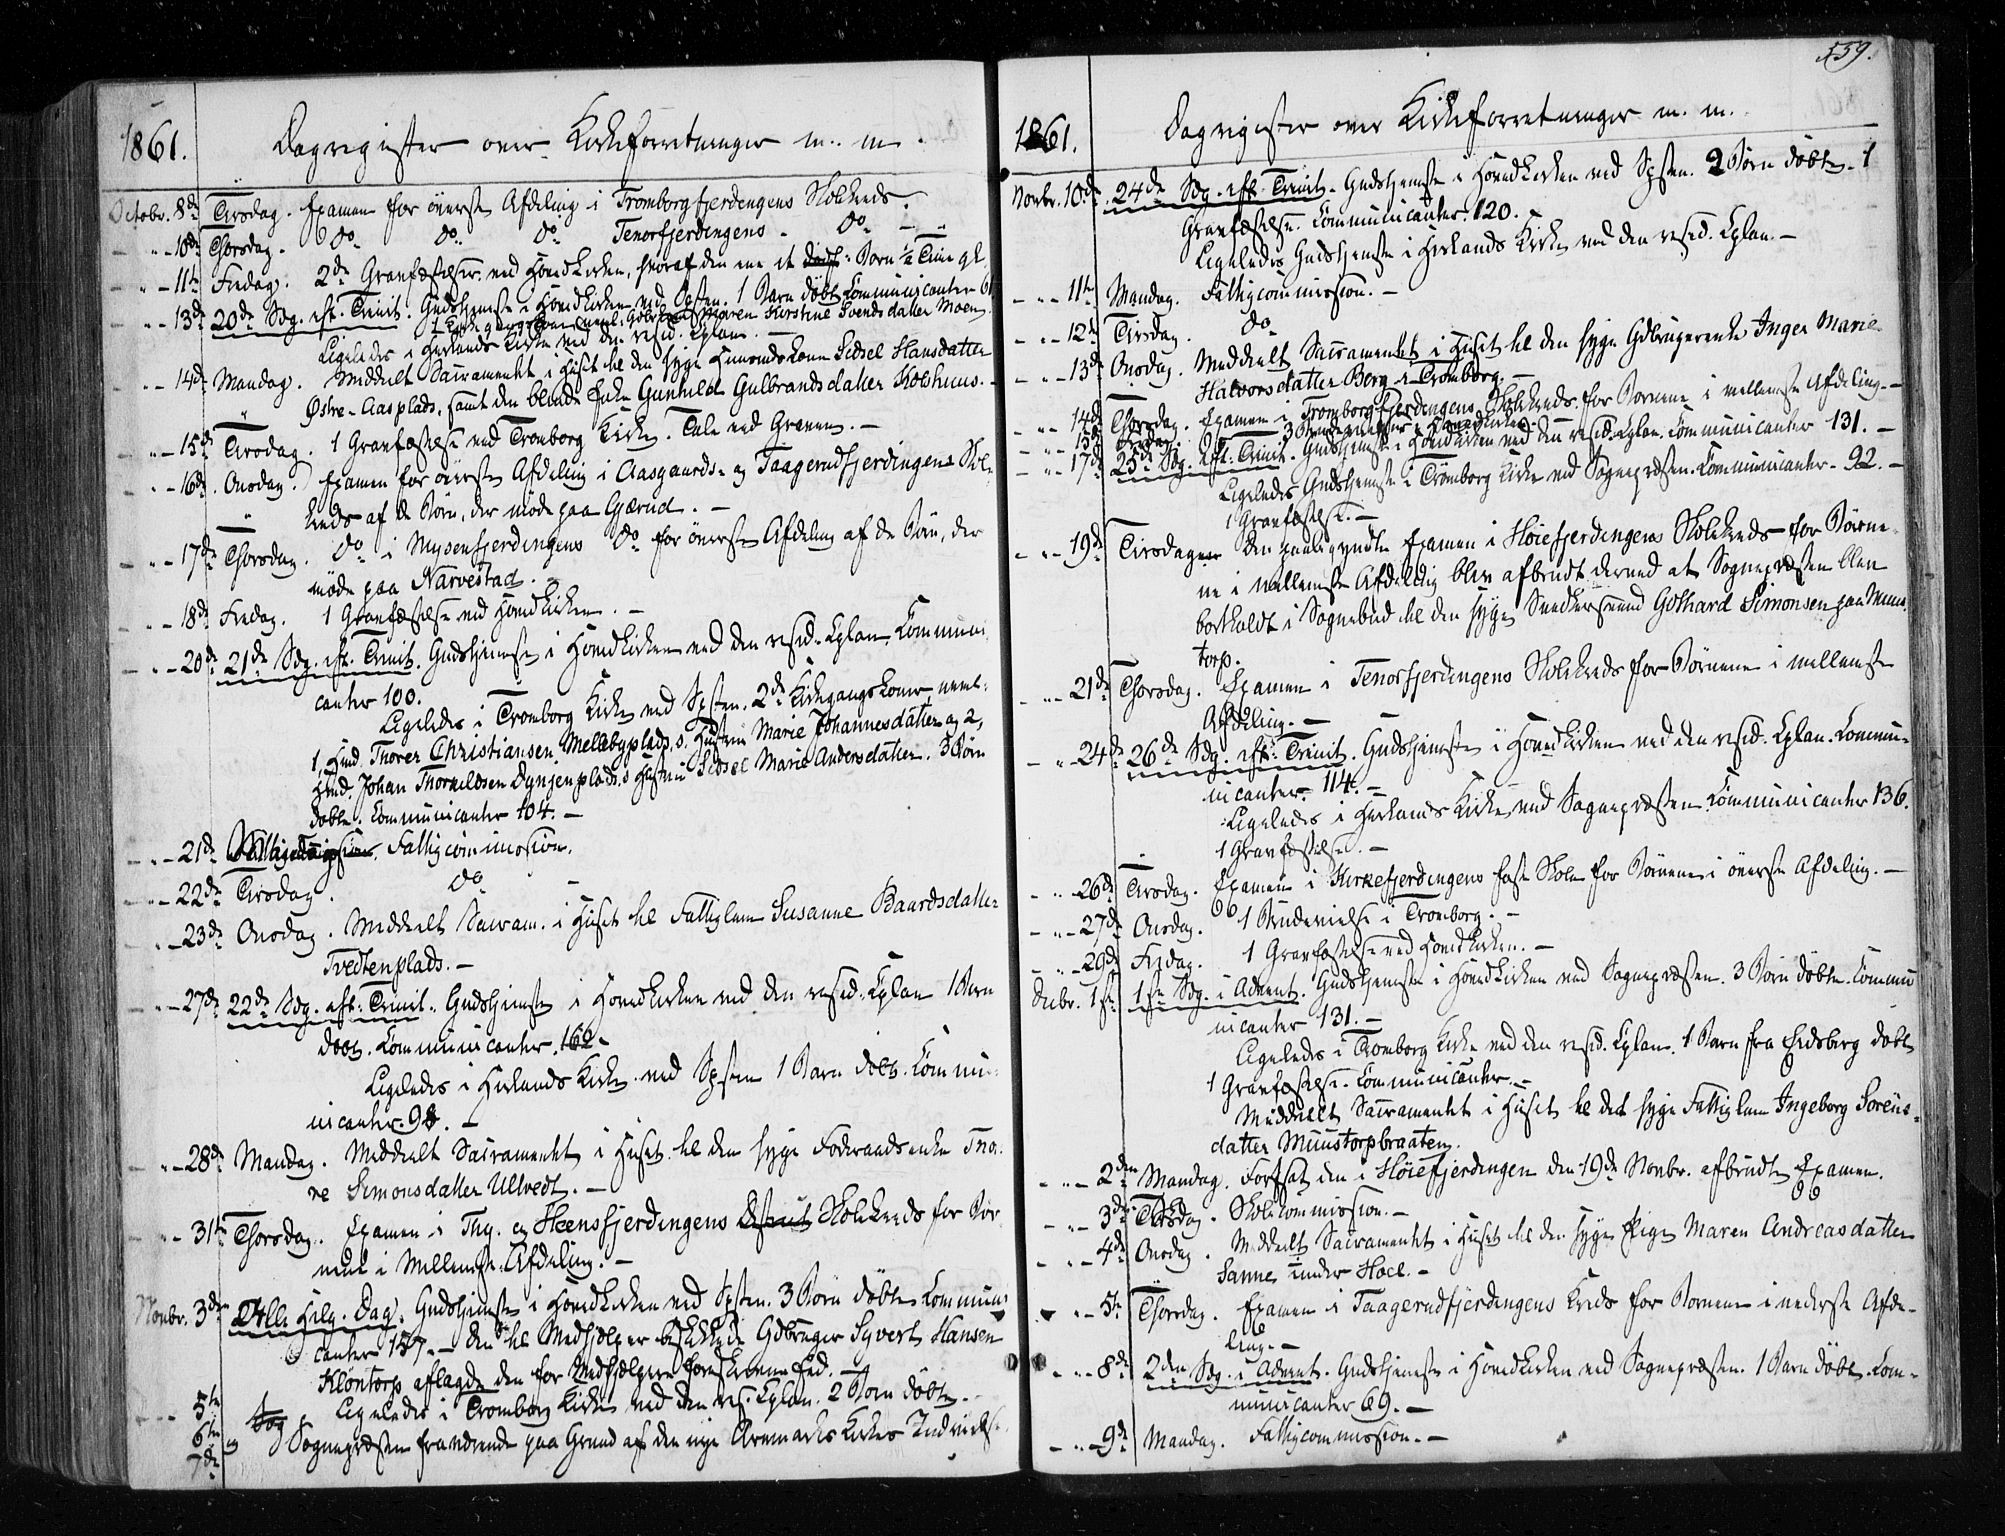 1861.
Dagregister over Kirkeforretninger m. m.
Octobr. 8de Tirsdag. Examen for øverste Afdeling i Tromborgfjerdingens Skolekreds.
" 10de Thorsdag. do do do Tenorfjerdingens do
" 11te Fredag. 2de Gravfæstelser ved Hovedkirken, hvoraf den ene et Barn 1/2 Time gl.
" 13de 20de Sdg. eft. Trinit. Gudstjeneste i Hovedkirken ved Spsten. 1 Barn døbt. Communicanter
1 Maren Kirstine Svendsdatter Moen.
Ligeledes i Herlands Kirke ved den resid. Cplan.
" 14de Mandag. Meddeelt Sacramentet i Huset til den syge Huusmandskone Sidsel Hansdatter
Østre-Aasplads, samt den blinde Enke Gunhild Gulbrandsdatter Kolshuus.
" 15de Tirsdag. 1 Gravfæstelse ved Tromborg Kirke. Tale ved Graven.
" 16de Onsdag. Examen for øverste Afdeling i Aasgaards- og Taagerudfjerdingens Skole-
kreds af de Børn, der møde paa Gjærud.
" 17de Thorsdag. do i Mysenfjerdingens do for øverste Afdeling af de Børn, der
møde paa Narvestad.
" 18de Fredag. 1 Gravfæstelse ved Hovedkirken.
" 20de 21de Sdg. eft. Trinit. Gudstjeneste i Hovedkirken ved den resid. Cplan. Communi-
canter 100.
Ligeledes i Tromborg Kirke ved Spsten. 2de Kirkegangskoner, neml.
1, Hmd. Thorer Christiansen Mellebyplads's Hustru Marie Johannesdatter og 2,
Hmd. Johan Thorkildsen Dynjenplads's Hustru Sidsel Marie Andersdatter. 3 Børn
døbte. Communicanter 104.
" 21de Mandag. Fattigcommission.
" 22de Tirsdag. do
" 23de Onsdag. Meddeelt Sacram. i Huset til Fattiglem Susanne Baardsdatter
Tvedtenplads.
" 27de 22de Sdg. eft. Trinit. Gudstjeneste i Hovedkirken ved den resid. Cplan. 1 Barn
døbt. Communicanter 160.
Ligeledes i Herlands Kirke ved Spsten. 1 Barn døbt. Commu-
nicanter 98.
" 28de Mandag. Meddeelt Sacramentet i Huset til den syge Foderaadsenke Tho-
re Simonsdatter Ultvedt.
" 31te Thorsdag. Examen i Thy. og Heensfjerdingens Skolekreds for Bør-
nene i mellemste Afdeling.
Novbr. 3de Alle Helg. Dag. Gudstjeneste i Hovedkirken ved Spsten. 3 Børn døbte. Communi-
canter 157. Den til Medhjelper beskikkede Gdbruger Syvert Hansen
Klöntorp aflagde den for Medhjælpere foreskrevne Eed.
Ligeledes i Tromborg Kirke ved den res. Cplan. 2 Børn døbte.
5te 6te og 7de Sognepræsten fraværende paa Grund af den nye Aremarks Kirkes Indvielse.
559.
1861.
Dagregister over Kirkeforretninger m. m.
Novbr. 10de 24de Sdg. eft. Trinit. Gudstjeneste i Hovedkirken ved Spsten. 2 Børn døbte. 1
Gravfæstelse. Communicanter 120.
Ligeledes Gudstjeneste i Herlands Kirke ved den resid. Cplan.
" 11te Mandag. Fattigcommission.
" 12te Tirsdag. do
" 13de Onsdag. Meddeelt Sacramentet i Huset til den syge Gdbrugerenke Inger Marie
Halvorsdatter Berg i Tromborg.
" 14de Thorsdag. Examen i Tromborgfjerdingens Skolekreds for Børnene i mellemste Afdeling.
" 15de Fredag. 3
" 17de 25de Sdg. eft. Trinit. Gudstjeneste i Hovedkirken ved den resid. Cplan. Communicanter 131.
Ligeledes Gudstjeneste i Tromborg Kirke ved Sognepræsten. Communicanter 92.
1 Gravfæstelse.
" 19de Tirsdag. Den paabegyndte Examen i Høiefjerdingens Skolekreds for Børne-
ne i mellemste Afdeling blev afbrudt derved at Sognepræsten blev
bortkaldt i Sognebud til den syge Snedkersvend Gothard Simonsen paa Muus-
torp.
" 21de Thorsdag. Examen i Tenorfjerdingens Skolekreds for Børnene i mellemste
Afdeling.
" 24de 26de Sdg. eft. Trinit. Gudstjeneste i Hovedkirken ved den resid. Cplan. Commu-
nicanter 114.
Ligeledes i Herlands Kirke ved Sognepræsten. Communicanter 136.
1 Gravfæstelse.
" 26de Tirsdag. Examen i Kirkefjerdingens faste Skole for Børnene i øverste Afdeling.
" 27de Onsdag. 1 Brudevielse i Tromborg.
" 29de Fredag. 1 Gravfæstelse ved Hovedkirken.
Decbr. 1ste 1ste Sdg. i Advent. Gudstjeneste i Hovedkirken ved Sognepræsten. 3 Børn døbte. Commu-
nicanter 131.
Ligeledes i Tromborg Kirke ved den resid. Cplan. 1 Barn fra Eidsberg døbt.
1 Gravfæstelse. Communicanter.
Meddeelt Sacramentet i Huset til det syge Fattiglem Ingeborg Sorens-
datter Muustorpbraaten.
" 2den Mandag. Fortsat den i Høiefjerdingen den 19de Novbr. afbrudte Examen.
" 3die Tirsdag. Skolecommission.
" 4de Onsdag. Meddeelt Sacramentet i Huset til den syge Pige Maren Andreasdatter
Sanne under Hoel.
" 5te Thorsdag. Examen i Taagerudfjerdingens Kreds for Børnene i nederste Afde-
ling.
" 8de 2den Sdg. i Advent. Gudstjeneste i Hovedkirken ved Sognepræsten. 1 Barn døbt. Com-
municanter 69.
" 9de Mandag. Fattigcommission.